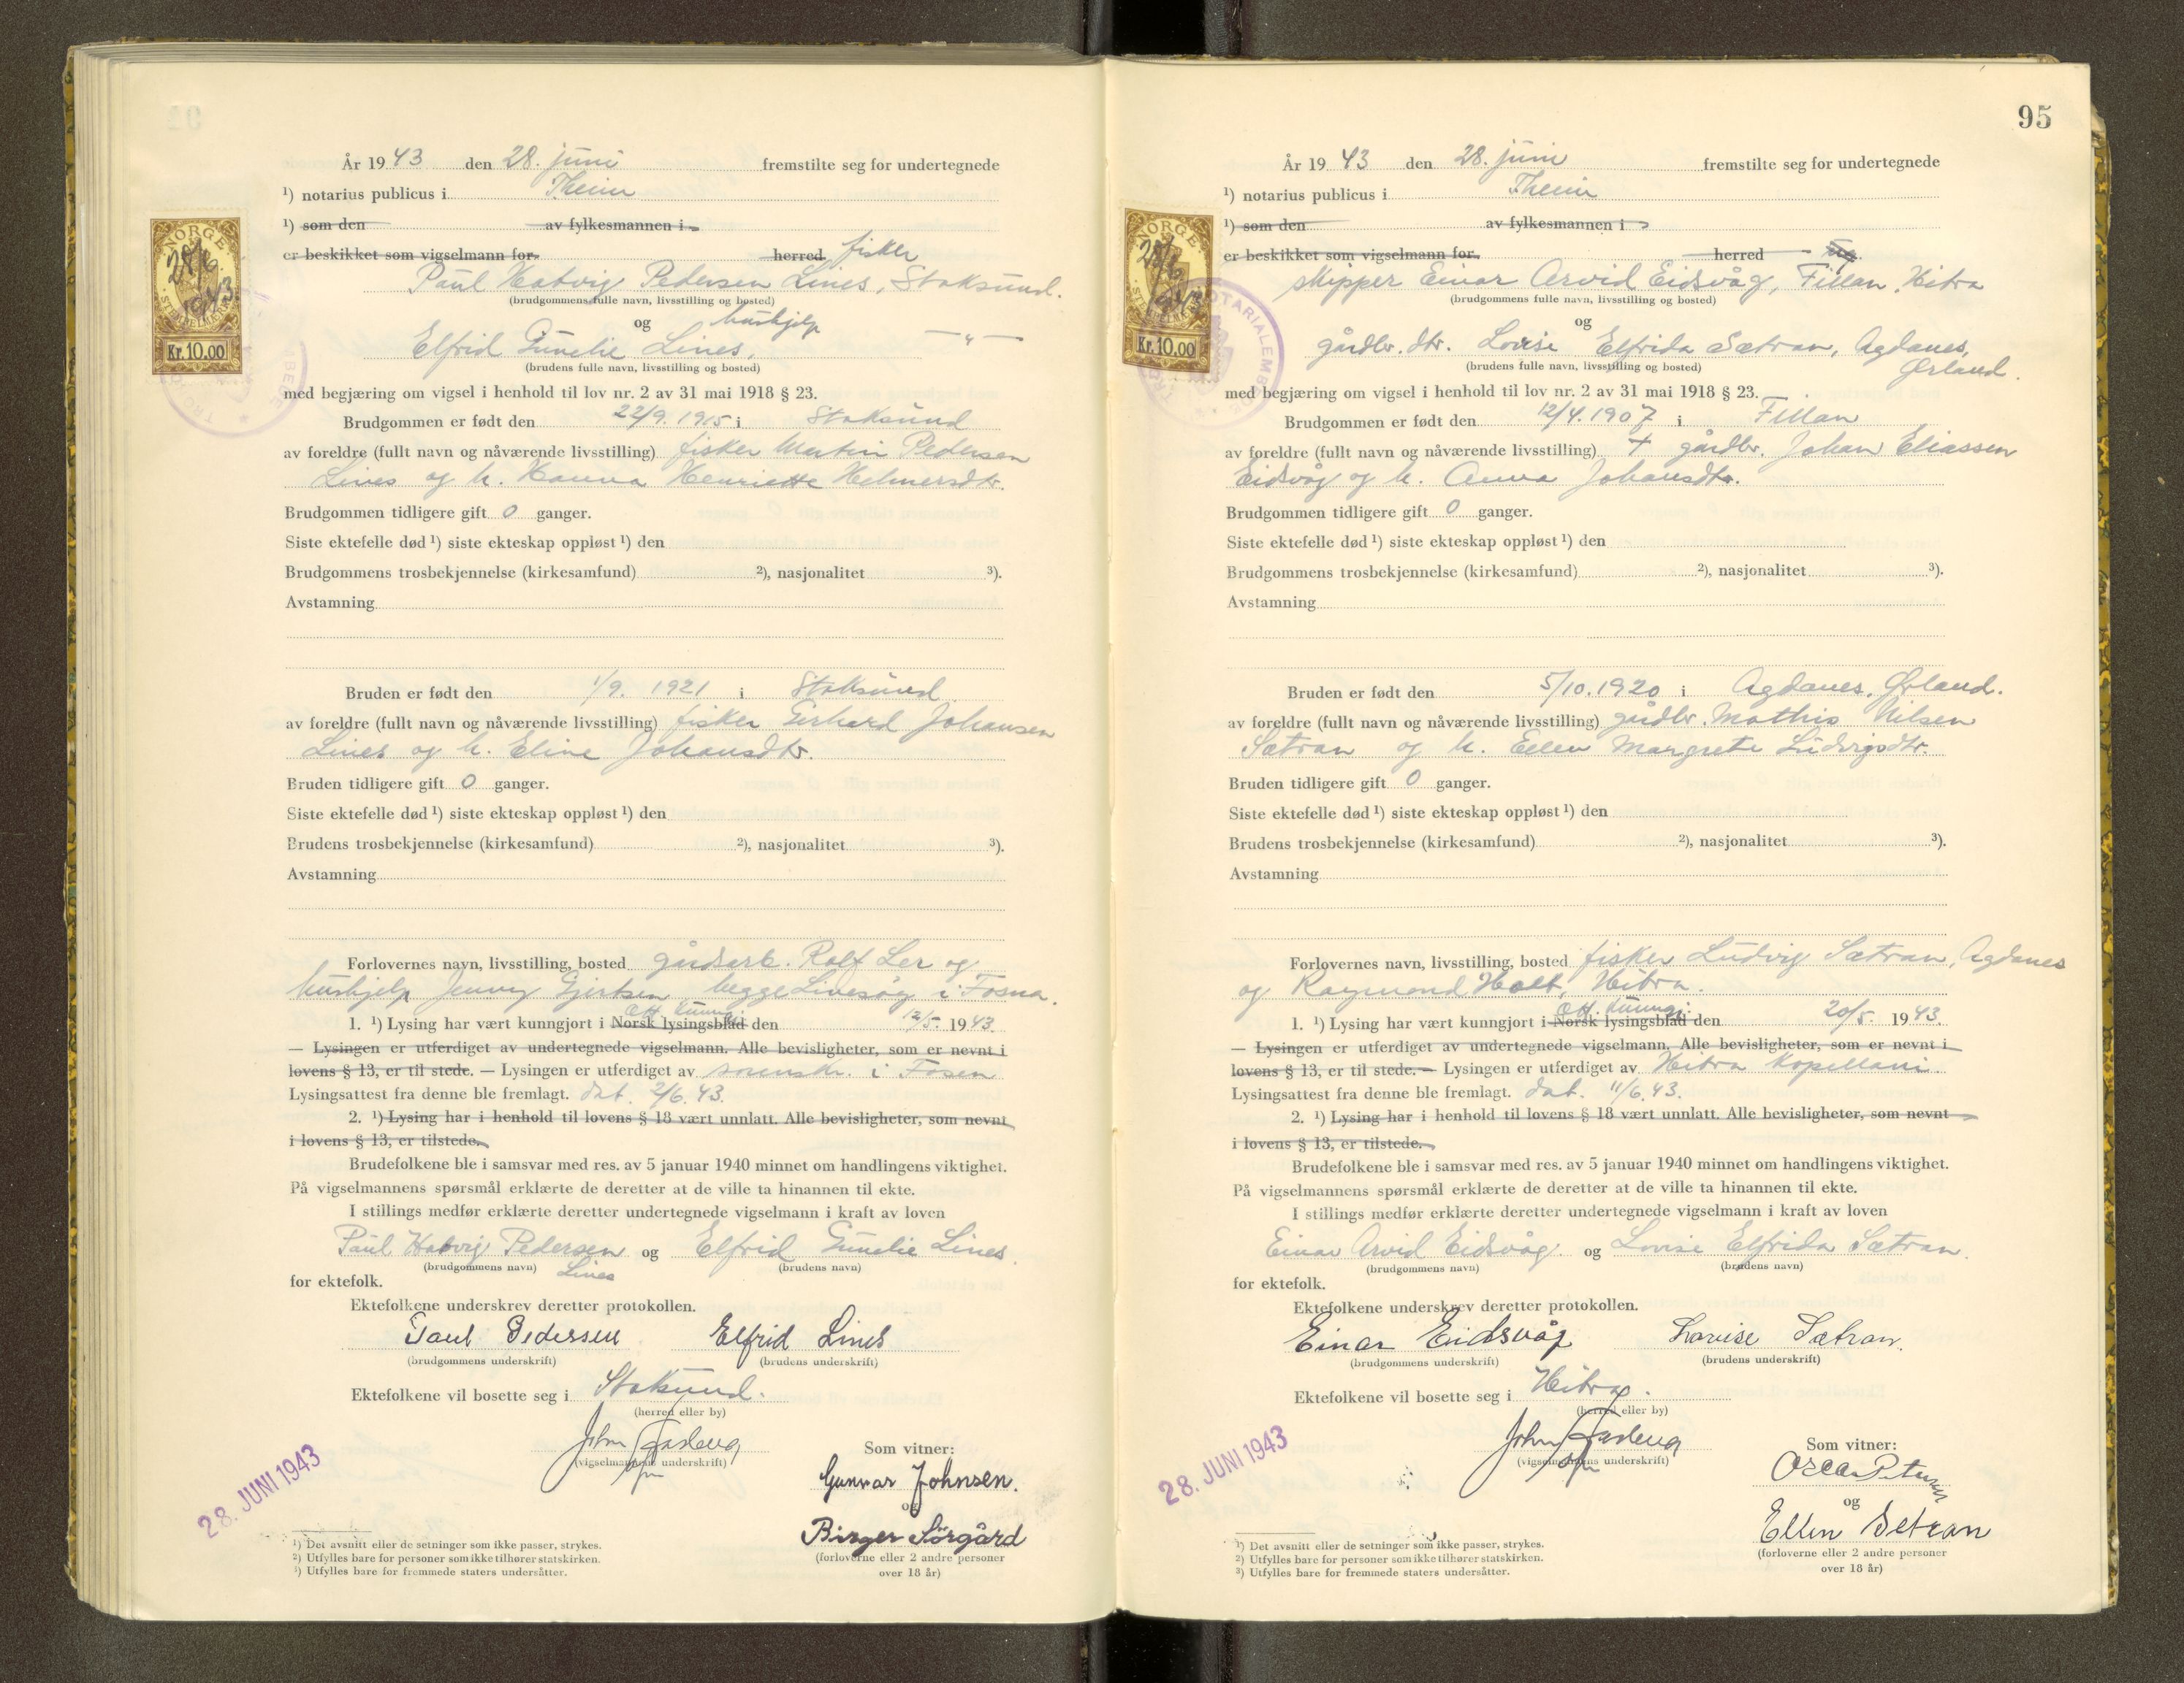 År 1943 den 28. juni fremstilte seg for undertegnede
¹) notarius publicus i Theim
¹) som den av fylkesmannen i
er beskikket som vigselmann for herred fisker
Paul Hatvig Pedersen Lines, Stoksund.
(brudgommens fulle navn, livsstilling og bosted)
og hushjelp
Elfrid Gunelie Lines, — " —
(brudens fulle navn, livsstilling og bosted)
med begjæring om vigsel i henhold til lov nr. 2 av 31 mai 1918 § 23.
Brudgommen er født den 22/9. 1915 i Stoksund
av foreldre (fullt navn og nåværende livsstilling) fisker Martin Pedersen
Lines og h. Hanna Henriette Helmersdtr.
Brudgommen tidligere gift 0 ganger.
Siste ektefelle død ¹) siste ekteskap oppløst ¹) den
Brudgommens trosbekjennelse (kirkesamfund) ²), nasjonalitet ³).
Avstamning
Bruden er født den 1/9. 1921 i Stoksund
av foreldre (fullt navn og nåværende livsstilling) fisker Gerhard Johansen
Lines og h. Eline Johansdtr.
Bruden tidligere gift 0 ganger.
Siste ektefelle død ¹) siste ekteskap oppløst ¹) den
Brudens trosbekjennelse (kirkesamfund) ²), nasjonalitet ³).
Avstamning
Forlovernes navn, livsstilling, bosted gårdsarb. Rolf Ler og
hushjelp Jenny Gjertsen begge Linesøy i Fosna.
Off. kunngj.
1. ¹) Lysing har vært kunngjort i Norsk lysingsblad den 12/5. 1943.
— Lysingen er utferdiget av undertegnede vigselmann. Alle bevisligheter, som er nevnt i
lovens § 13, er til stede. — Lysingen er utferdiget av sorenskr. i Fosen
Lysingsattest fra denne ble fremlagt. dat. 2/6. 43.
2. ¹) Lysing har i henhold til lovens § 18 vært unnlatt. Alle bevisligheter, som nevnt
i lovens § 13, er tilstede.
Brudefolkene ble i samsvar med res. av 5 januar 1940 minnet om handlingens viktighet.
På vigselmannens spørsmål erklærte de deretter at de ville ta hinannen til ekte.
I stillings medfør erklærte deretter undertegnede vigselmann i kraft av loven
Paul Hatvig Pedersen og Elfrid Gunelie Lines
(brudgommens navn) Lines (brudens navn)
for ektefolk.
Ektefolkene underskrev deretter protokollen.
Paul Pedersen Elfrid Lines
(brudgommens underskrift) (brudens underskrift)
Ektefolkene vil bosette seg i Stoksund.
(herred eller by)
John
(vigselmannens underskrift)
Som vitner:
Gunnar Johnsen.
og
Birger Sörgård
(forloverne eller 2 andre personer
over 18 år)
28. JUNI 1943
¹) Det avsnitt eller de setninger som ikke passer, strykes.
²) Utfylles bare for personer som ikke tilhører statskirken.
³) Utfylles bare for fremmede staters undersåtter.
NORGE
28/6.
1943
STEMPELMERKE
Kr. 10.00
95
År 1943 den 28. juni fremstilte seg for undertegnede
¹) notarius publicus i Theim
¹) som den av fylkesmannen i
er beskikket som vigselmann for herred
skipper Einar Arvid Eidsvåg, Fillan, Hitra
(brudgommens fulle navn, livsstilling og bosted)
og
gårdbr. dtr. Lovise Elfrida Sætran, Agdanes,
Ørland.
(brudens fulle navn, livsstilling og bosted)
med begjæring om vigsel i henhold til lov nr. 2 av 31 mai 1918 § 23.
Brudgommen er født den 12/4. 1907 i Fillan
av foreldre (fullt navn og nåværende livsstilling) + gårdbr. Johan Eliassen
Eidsvåg og h. Anna Johansdtr.
Brudgommen tidligere gift 0 ganger.
Siste ektefelle død ¹) siste ekteskap oppløst ¹) den
Brudgommens trosbekjennelse (kirkesamfund) ²), nasjonalitet ³).
Avstamning
Bruden er født den 5/10. 1920 i Agdanes, Ørland.
av foreldre (fullt navn og nåværende livsstilling) gårdbr. Mathis Nilsen
Sætran og h. Ellen Margrete Ludvigsdtr.
Bruden tidligere gift 0 ganger.
Siste ektefelle død ¹) siste ekteskap oppløst ¹) den
Brudens trosbekjennelse (kirkesamfund) ²), nasjonalitet ³).
Avstamning
Forlovernes navn, livsstilling, bosted fisker Ludvig Sætran, Agdanes
og Raymond Holt, Hitra.
Off. kunngj.
1. ¹) Lysing har vært kunngjort i Norsk lysingsblad den 20/5. 1943.
— Lysingen er utferdiget av undertegnede vigselmann. Alle bevisligheter, som er nevnt i
lovens § 13, er til stede. — Lysingen er utferdiget av Hitra kapellani.
Lysingsattest fra denne ble fremlagt. dat. 11/6. 43.
2. ¹) Lysing har i henhold til lovens § 18 vært unnlatt. Alle bevisligheter, som nevnt
i lovens § 13, er tilstede.
Brudefolkene ble i samsvar med res. av 5 januar 1940 minnet om handlingens viktighet.
På vigselmannens spørsmål erklærte de deretter at de ville ta hinannen til ekte.
I stillings medfør erklærte deretter undertegnede vigselmann i kraft av loven
Einar Arvid Eidsvåg og Lovise Elfrida Sætran.
(brudgommens navn) (brudens navn)
for ektefolk.
Ektefolkene underskrev deretter protokollen.
Einar Eidsvåg Lovise Sætran.
(brudgommens underskrift) (brudens underskrift)
Ektefolkene vil bosette seg i Hitra.
(herred eller by)
John
(vigselmannens underskrift)
Som vitner:
Oscar Petersen
og
Ellen Setran
(forloverne eller 2 andre personer
over 18 år)
28. JUNI 1943
¹) Det avsnitt eller de setninger som ikke passer, strykes.
²) Utfylles bare for personer som ikke tilhører statskirken.
³) Utfylles bare for fremmede staters undersåtter.
NORGE
28/6
1943
Kr. 10.00